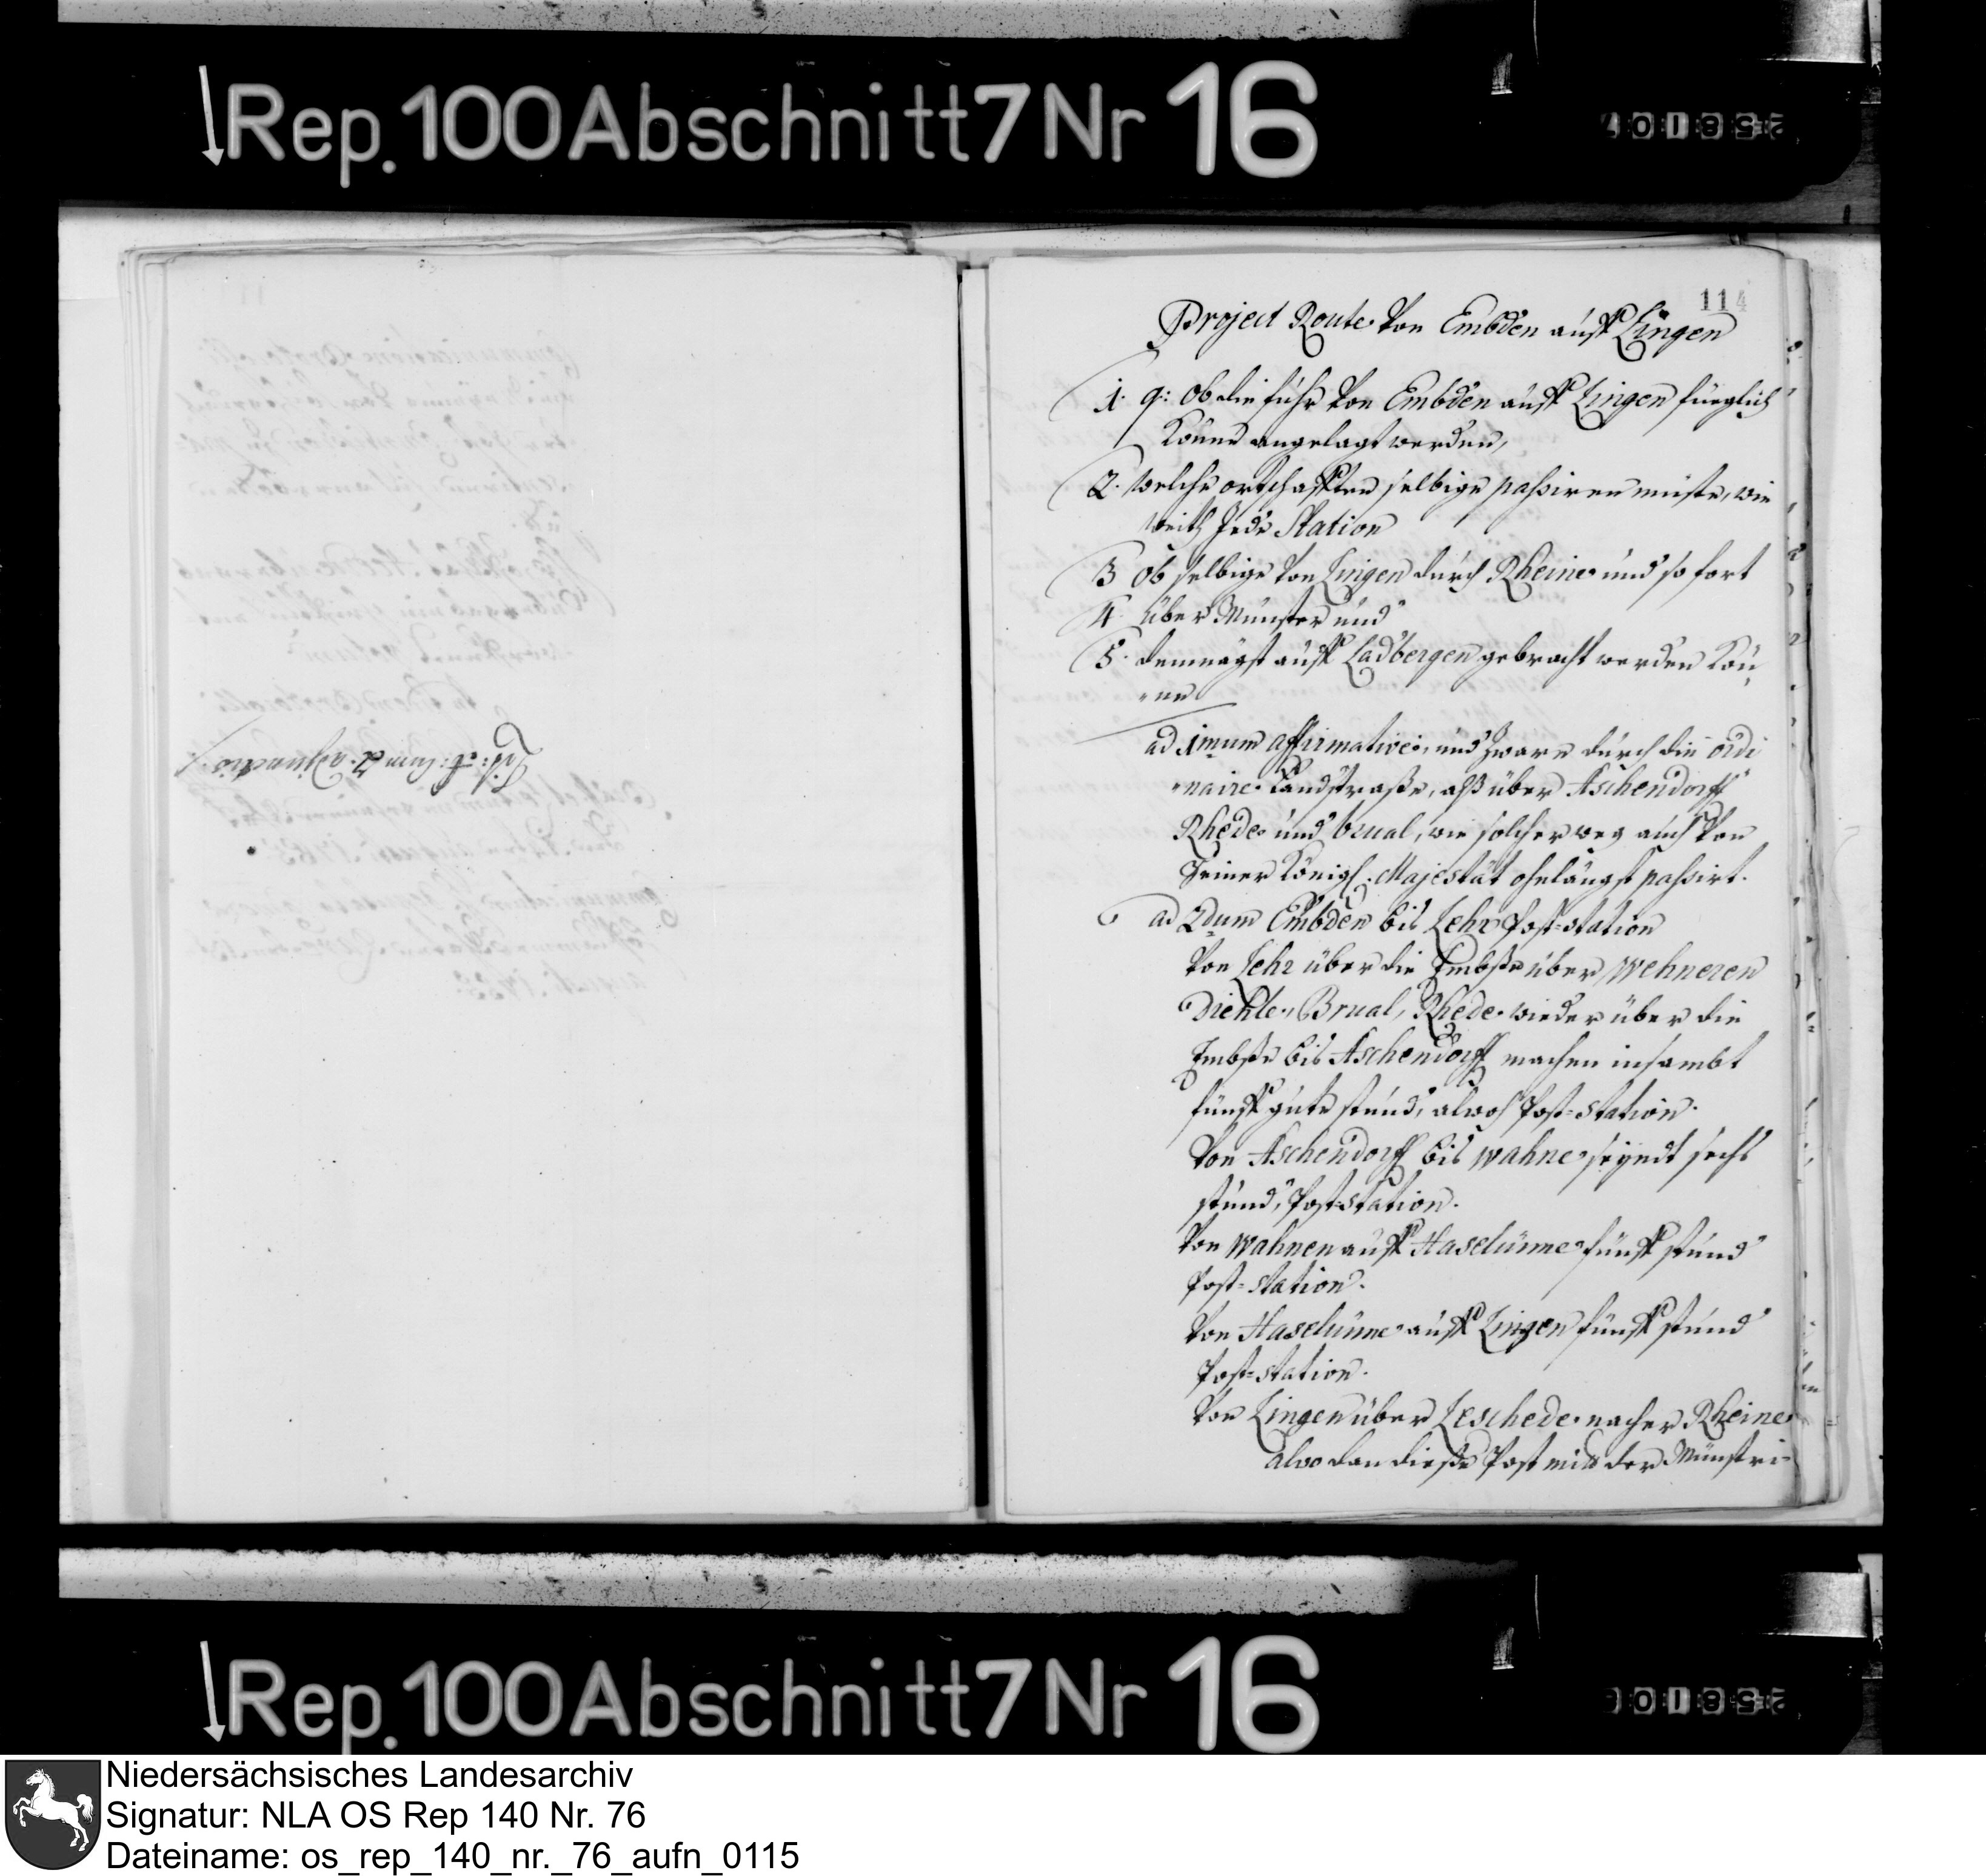 Rep. 100 Abschnitt 7 Nr 16
258107
114
Project Route von Embden auff Lingen
1. q: ob die fuhr von Embden auff Lingen fueglich
könne angelagt werden,
2. welche ortschafften selbige passiren müste, wie
weith jede Station
3 ob selbige von Lingen durch Rheine und so fort
4. über Münster und
5. demnägst auff Ladbergen gebracht werden kön„
„ne
ad 1mum affirmative, und zware durch die ordi
„naire Landstraße, alß über Aschendorff
Rhede und brual, wie solcher weg auch von
Seiner Königl. Majestät ohnlängst passirt.
ad 2dum Embden bis Lehr Post-station
von Lehr über die Embße über Wehneren
Diehle, Brual, Rhede wieder über die
Embße bis Aschendorff machen insambt
fünff gute stund, alwoh Post-station.
von Aschendorff bis wahne seyndt sechs
stund, Post-station.
von Wahnen auff Haselünne fünff stund
Post-station.
von Haselünne auff Lingen fünff stund
Post-station.
von Lingen über Leschede nacher Rheine
alwo dan dieße Post mit der Münstri-
Rep. 100 Abschnitt 7 Nr 16
Niedersächsisches Landesarchiv
Signatur: NLA OS Rep 140 Nr. 76
Dateiname: os_rep_140_nr._76_aufn_0115